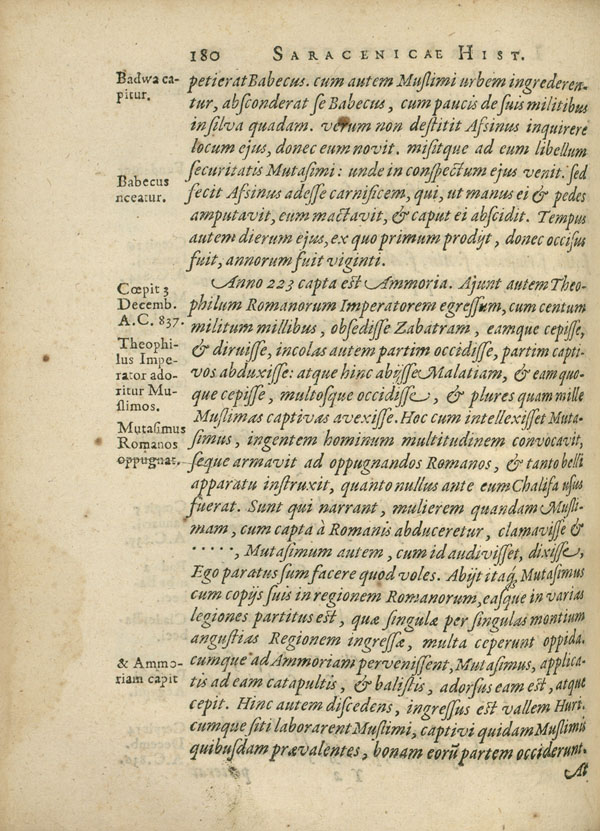 180 SARACENICAE HIST.
Badwa ca-
pitur.
petierat Babecus. cum autem Muslimi urbem ingrederen-
tur, absconderat se Babecus, cum paucis de suis militibus
in silva quadam. verum non destitit Afsinus inquirere
locum ejus, donec eum novit. misitque ad eum libellum
securitatis Mutasimi: unde in conspectum ejus venit. sed
Babecus
nceatur.
fecit Afsinus adesse carnificem, qui, ut manus ei & pedes
amputavit, eum mactavit, & caput ei abscidit. Tempus
autem dierum ejus, ex quo primum prodyt, donec occisus
fuit, annorum fuit viginti.
Cœpit 3
Decemb.
A.C. 837.
Anno 223 capta est Ammoria. Ajunt autem Theo-
philum Romanorum Imperatorem egressum, cum centum
militum millibus, obsedisse Zabatram, eamque cepisse,
Theophi-
lus Impe-
rator ado-
ritur Mu-
slimos.
& diruisse, incolas autem partim occidisse, partim capti-
vos abduxisse: atque hinc abysse Malatiam, & eam quo-
que cepisse, multosque occidisse, & plures quam mille
Muslimas captivas avexisse. Hoc cum intellexisset Muta-
Mutasimus
Romanos
oppugnat.
simus, ingentem hominum multitudinem convocavit,
seque armavit ad oppugnandos Romanos, & tanto belli
apparatu instruxit, quanto nullus ante eum Chalifa usus
fuerat. Sunt qui narrant, mulierem quandam Musli-
mam, cum capta à Romanis abduceretur, clamavisse &
. . . . . , Mutasimum autem, cum id audivisset, dixisse,
Ego paratus sum facere quod voles. Abyt itaq́, Mutasimus
cum copys suis in regionem Romanorum, easque in varias
legiones partitus est, quæ singulæ per singulas montium
angustias Regionem ingressæ, multa ceperunt oppida.
& Ammo-
riam capit
cumque ad Ammoriam pervenissent, Mutasimus, applica-
tis ad eam catapultis, & balistis, adorsus eam est, atque
cepit. Hinc autem discedens, ingressus est vallem Huri.
cumque siti laborarent Muslimi, captivi quidam Muslimis
quibusdam prævalentes, bonam eorũ partem occiderunt.
At